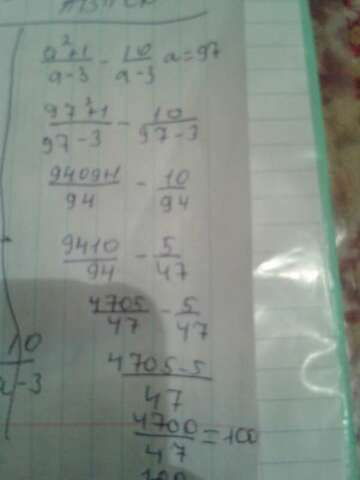 a²+1/a-3 - 10/a-3 a=97
97²+1/97-3 - 10/97-3
9409+1/94 - 10/94
9410/94 - 5/47
4705/47 - 5/47
10/a-3
4705-5/47
4700/47 = 100
100